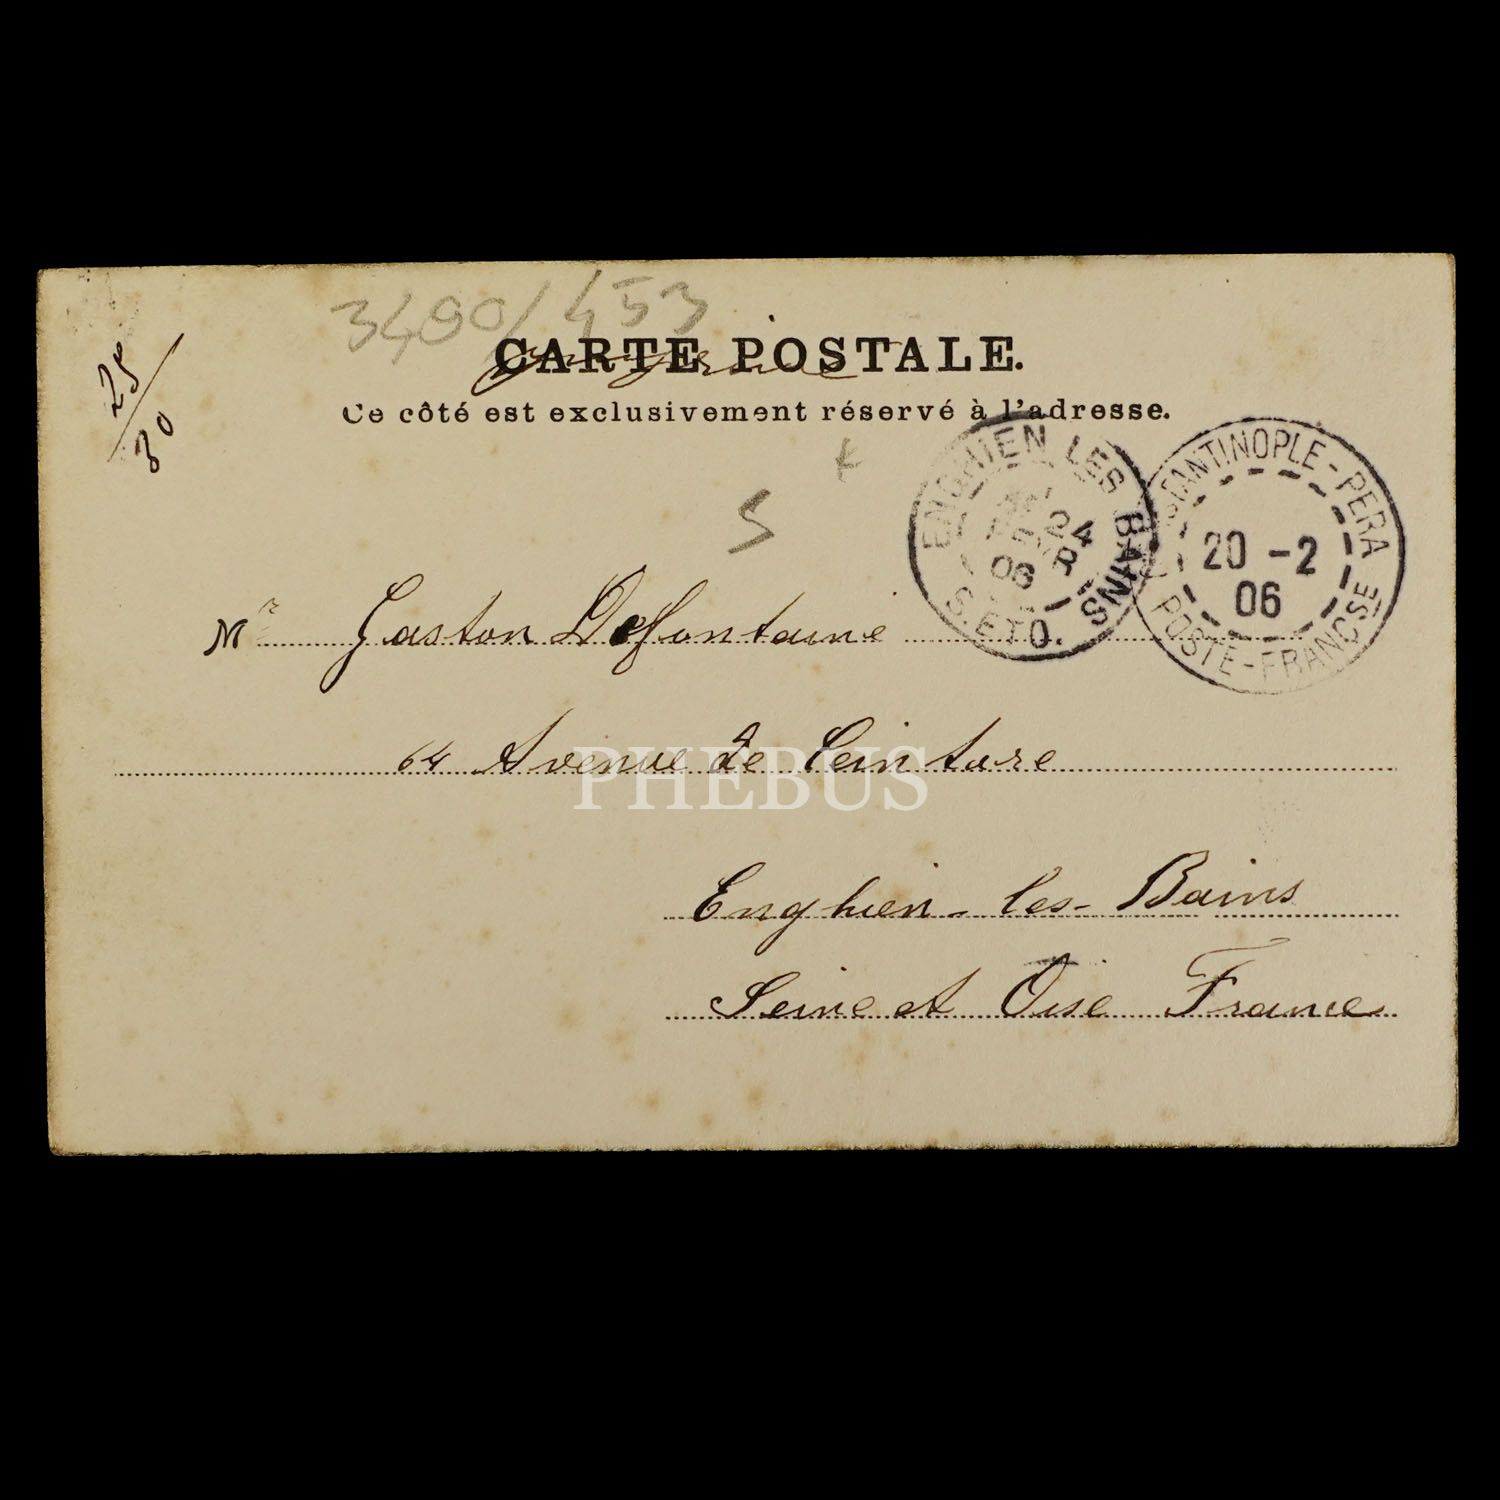 3490/453
25/30
CARTE POSTALE.
Ce côté est exclusivement réservé à l'adresse.
ENGHIEN LES BAINS
24
FEVR
06
S. ET O.
STANTINOPLE - PERA
20 -2
06
POSTE - FRANÇSE
S
Mr Gaston Defontaine
64 Avenue de Ceinture
PHEBUS
Enghien-les-Bains
Seine et Oise France